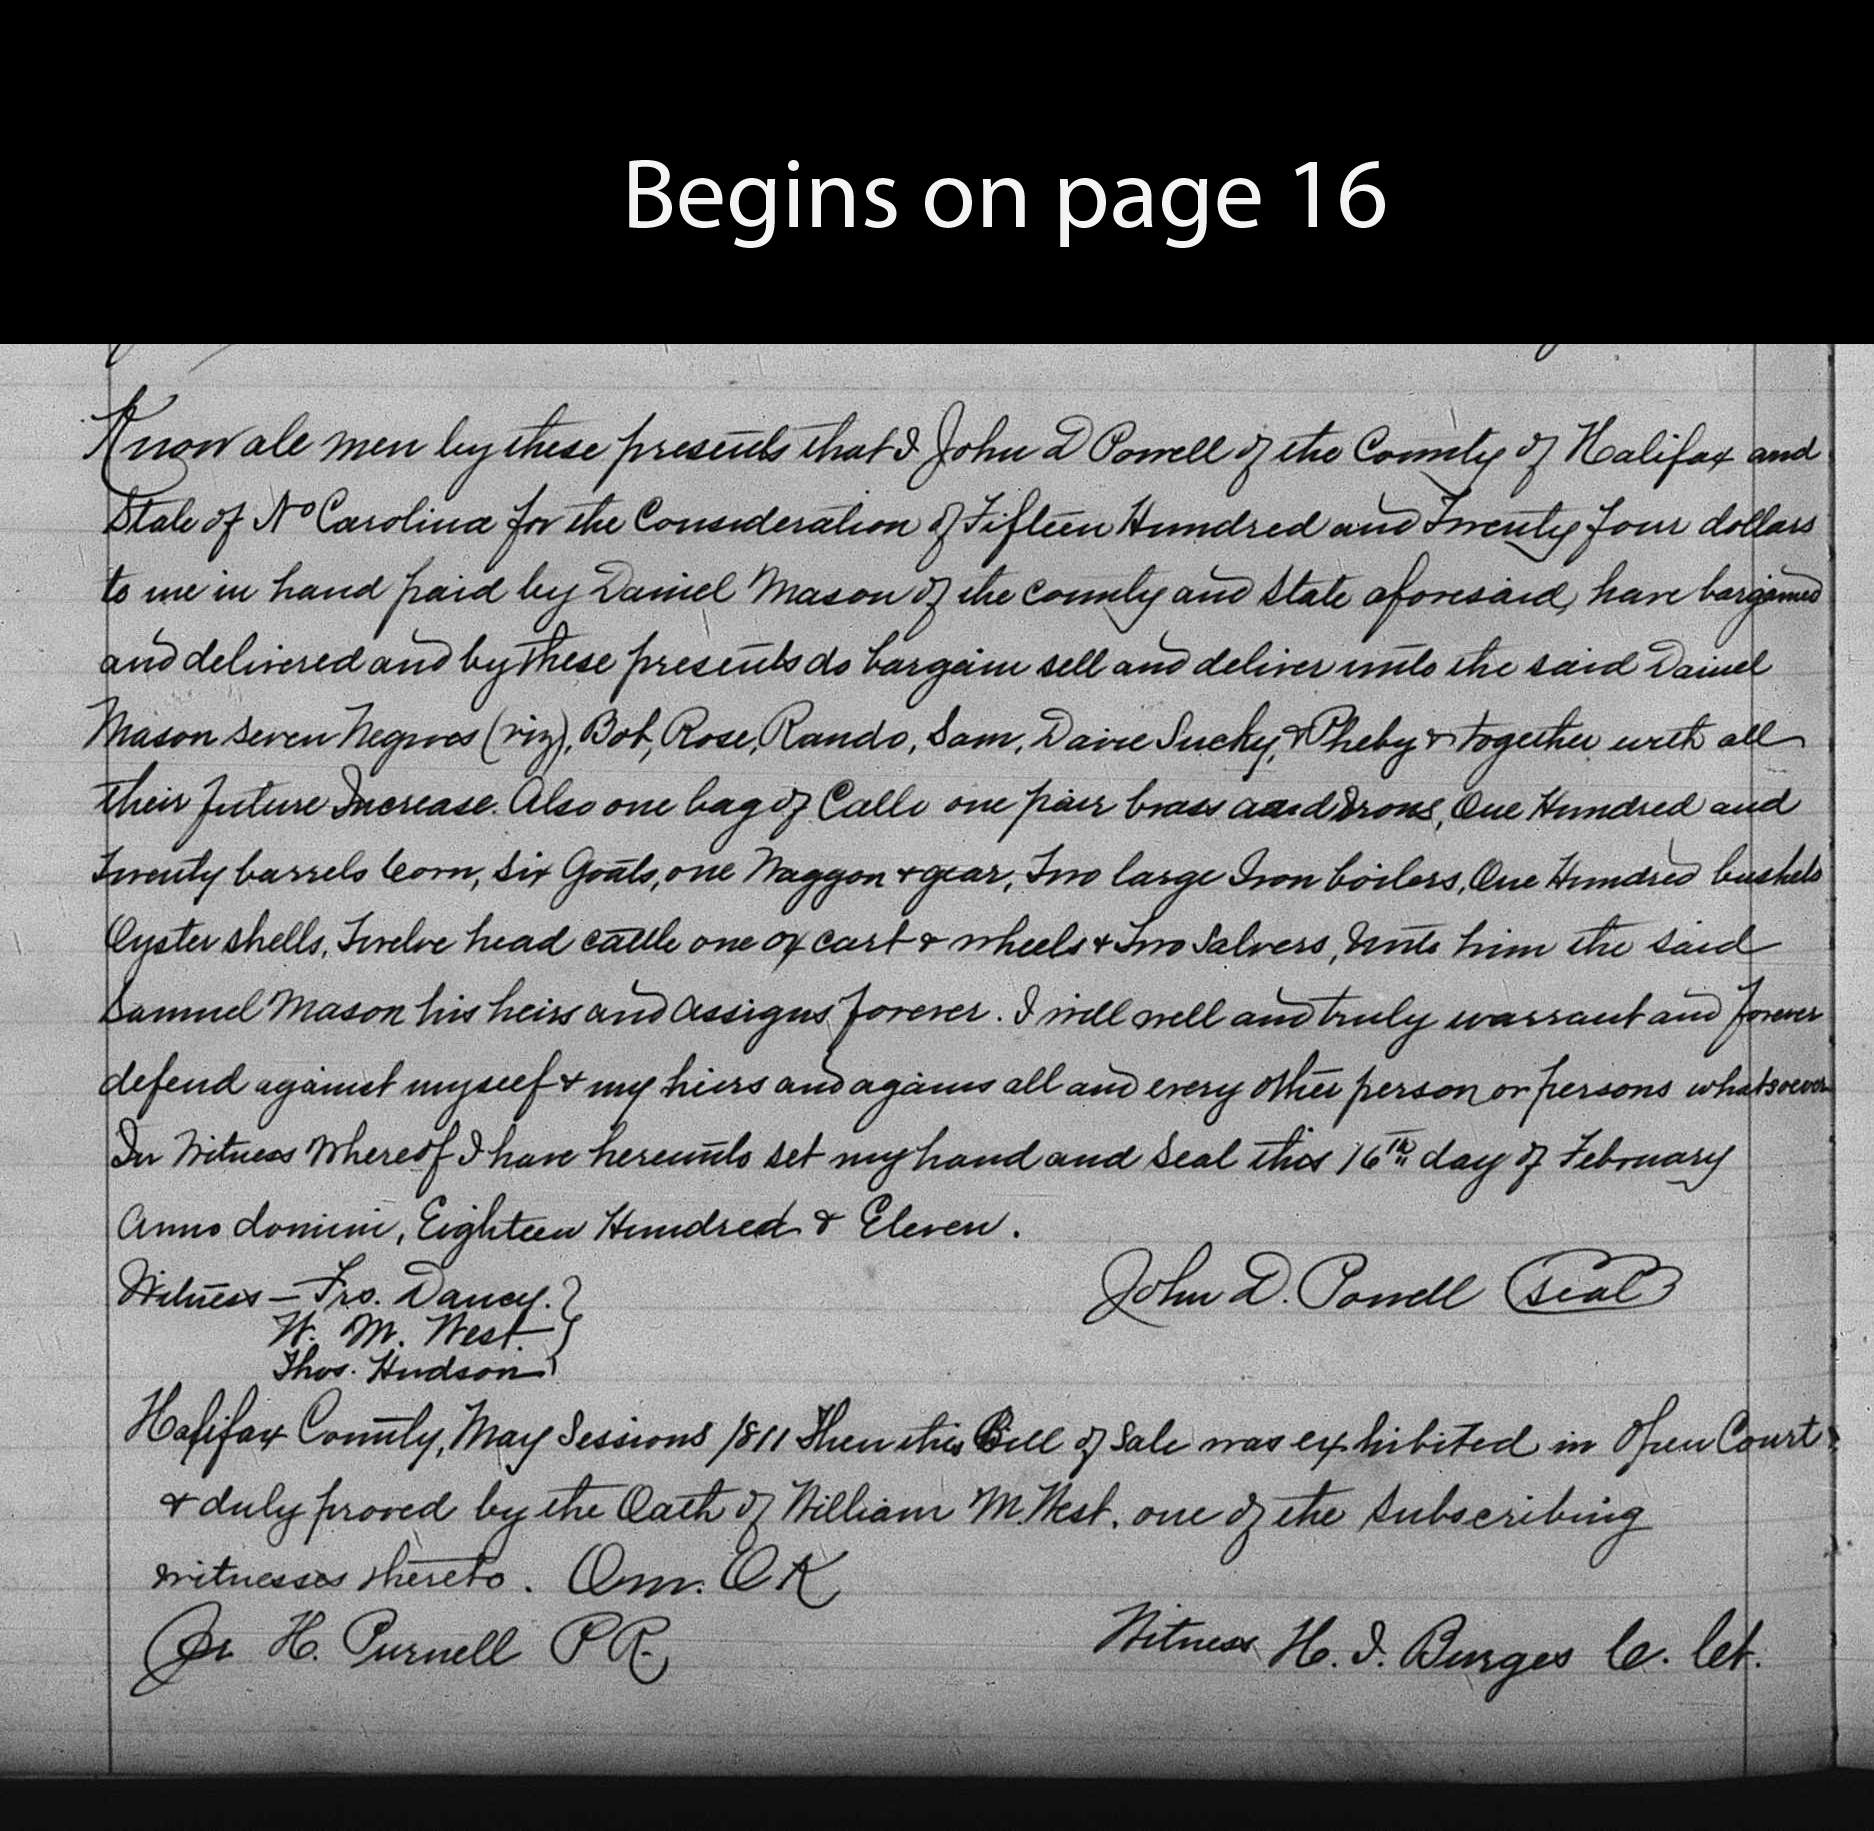 Begins on page 16
Know all men by these presents that I John D Powell of the County of Halifax and
State of No Carolina for the Consideration of Fifteen Hundred and Twenty four dollars
to me in hand paid by Daniel Mason of the county and State aforesaid, have bargained
and delivered and by these presents do bargain sell and deliver unto the said Daniel
Mason seven Negroes (viz), Bob, Rose, Rando, Sam, Davie Sucky, & Pheby & together with all
their future Increase. Also one bag of one pair brass aandIrons, One Hundred and
Twenty barrels Corn, Six Goats, one Waggon & gear, Two large Iron boilers, One Hundred bushels
Oyster shells, Twelve head cattle one ox cart & wheels & Two Salvers, Unto him the said
Samuel Mason his heirs and assigns forever. I will well and truly warrant and forever
defend against myself & my hiers and agains all and every other person or persons whatsoever
In Witness Whereof I have hereunto set my hand and Seal this 16th day of February
Anno domini, Eighteen Hundred & Eleven.
Witness – Fro. Dancy.
John D. Powell Seal
W. M. West.
Thos. Hudson
Halifax County, May Sessions 1811 Then this Bill of Sale was exhibited in Open Court
& duly proved by the Oath of William M. West. one of the Subscribing
witnesses thereto. Om. O K
H. Purnell P R.
Witness H. J. Burges C. Ct.